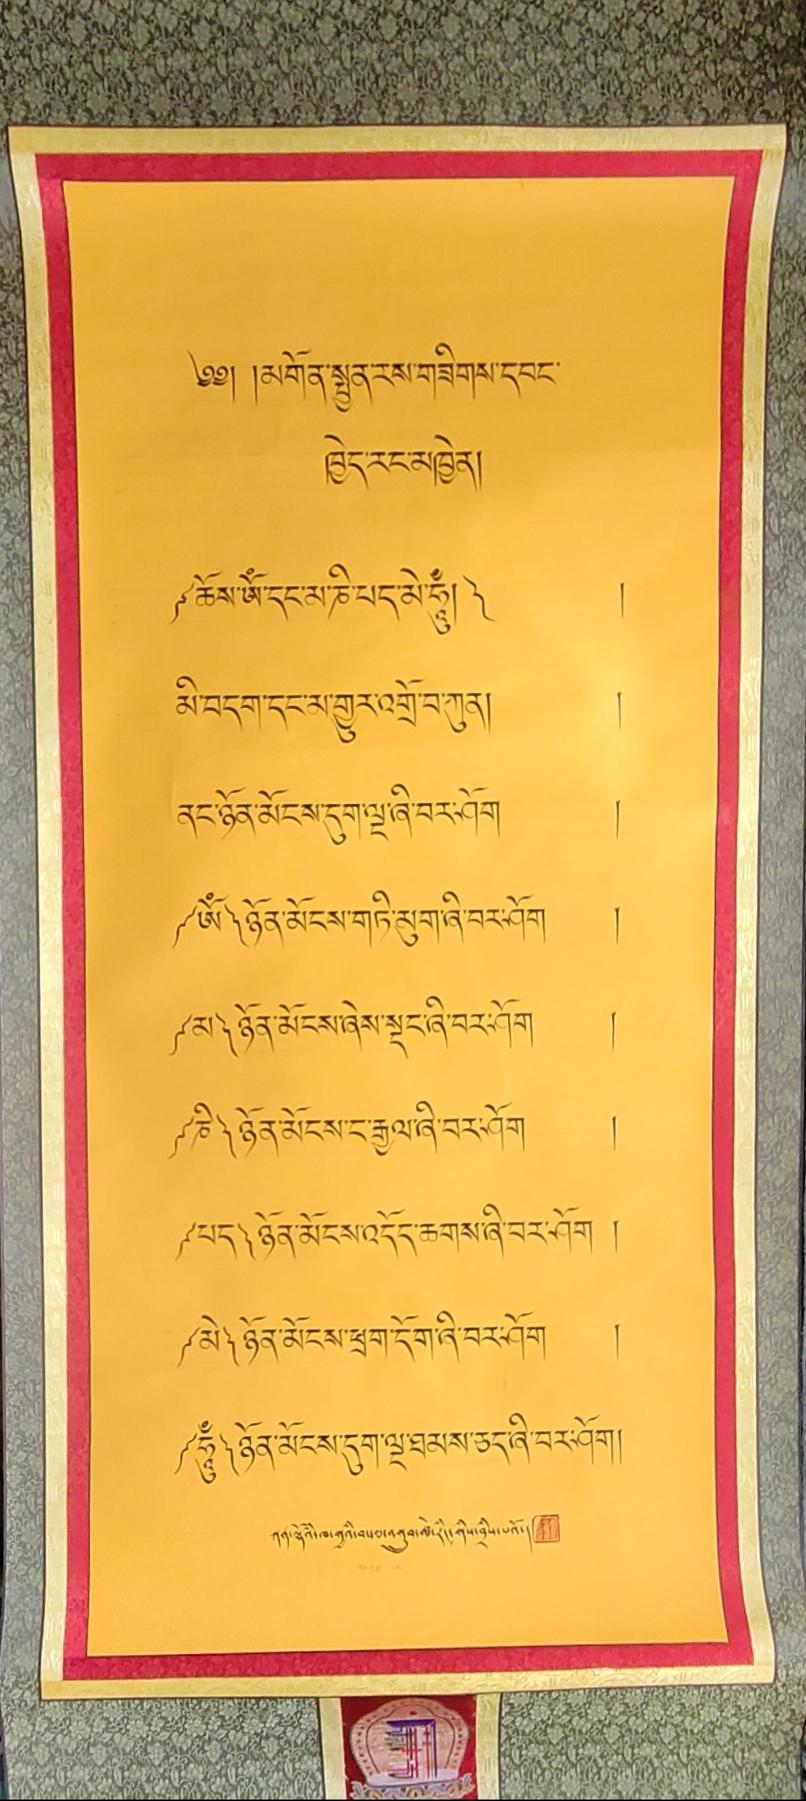 ༄༅། །མགོན་སྤྱན་རས་གཟིགས་དབང་
ཁྱེད་རང་མཁྱེན།
༼ཆོས་ཨོཾ་དང་མ་ཎི་པད་མེ་ཧཱུྃ། ༽ །
མི་བདག་དང་མ་གྱུར་འགྲོ་བ་ཀུན། །
ནང་ཉོན་མོངས་དུག་ལྔ་ཞི་བར་ཤོག །
༼ཨོཾ༽ཉོན་མོངས་གཏི་མུག་ཞི་བར་ཤོག །
༼མ༽ཉོན་མོངས་ཞེས་སྡང་ཞི་བར་ཤོག །
༼ཎི༽ཉོན་མོངས་ང་རྒྱལ་ཞི་བར་ཤོག །
༼པད༽ཉོན་མོངས་འདོད་ཆགས་ཞི་བར་ཤོག །
༼མེ༽ཉོན་མོངས་ཕྲག་དོག་ཞི་བར་ཤོག །
༼ཧཱུྃ༽ཉོན་མོངས་དུག་ལྔ་ཐམས་ཅད་ཞི་བར་ཤོག།